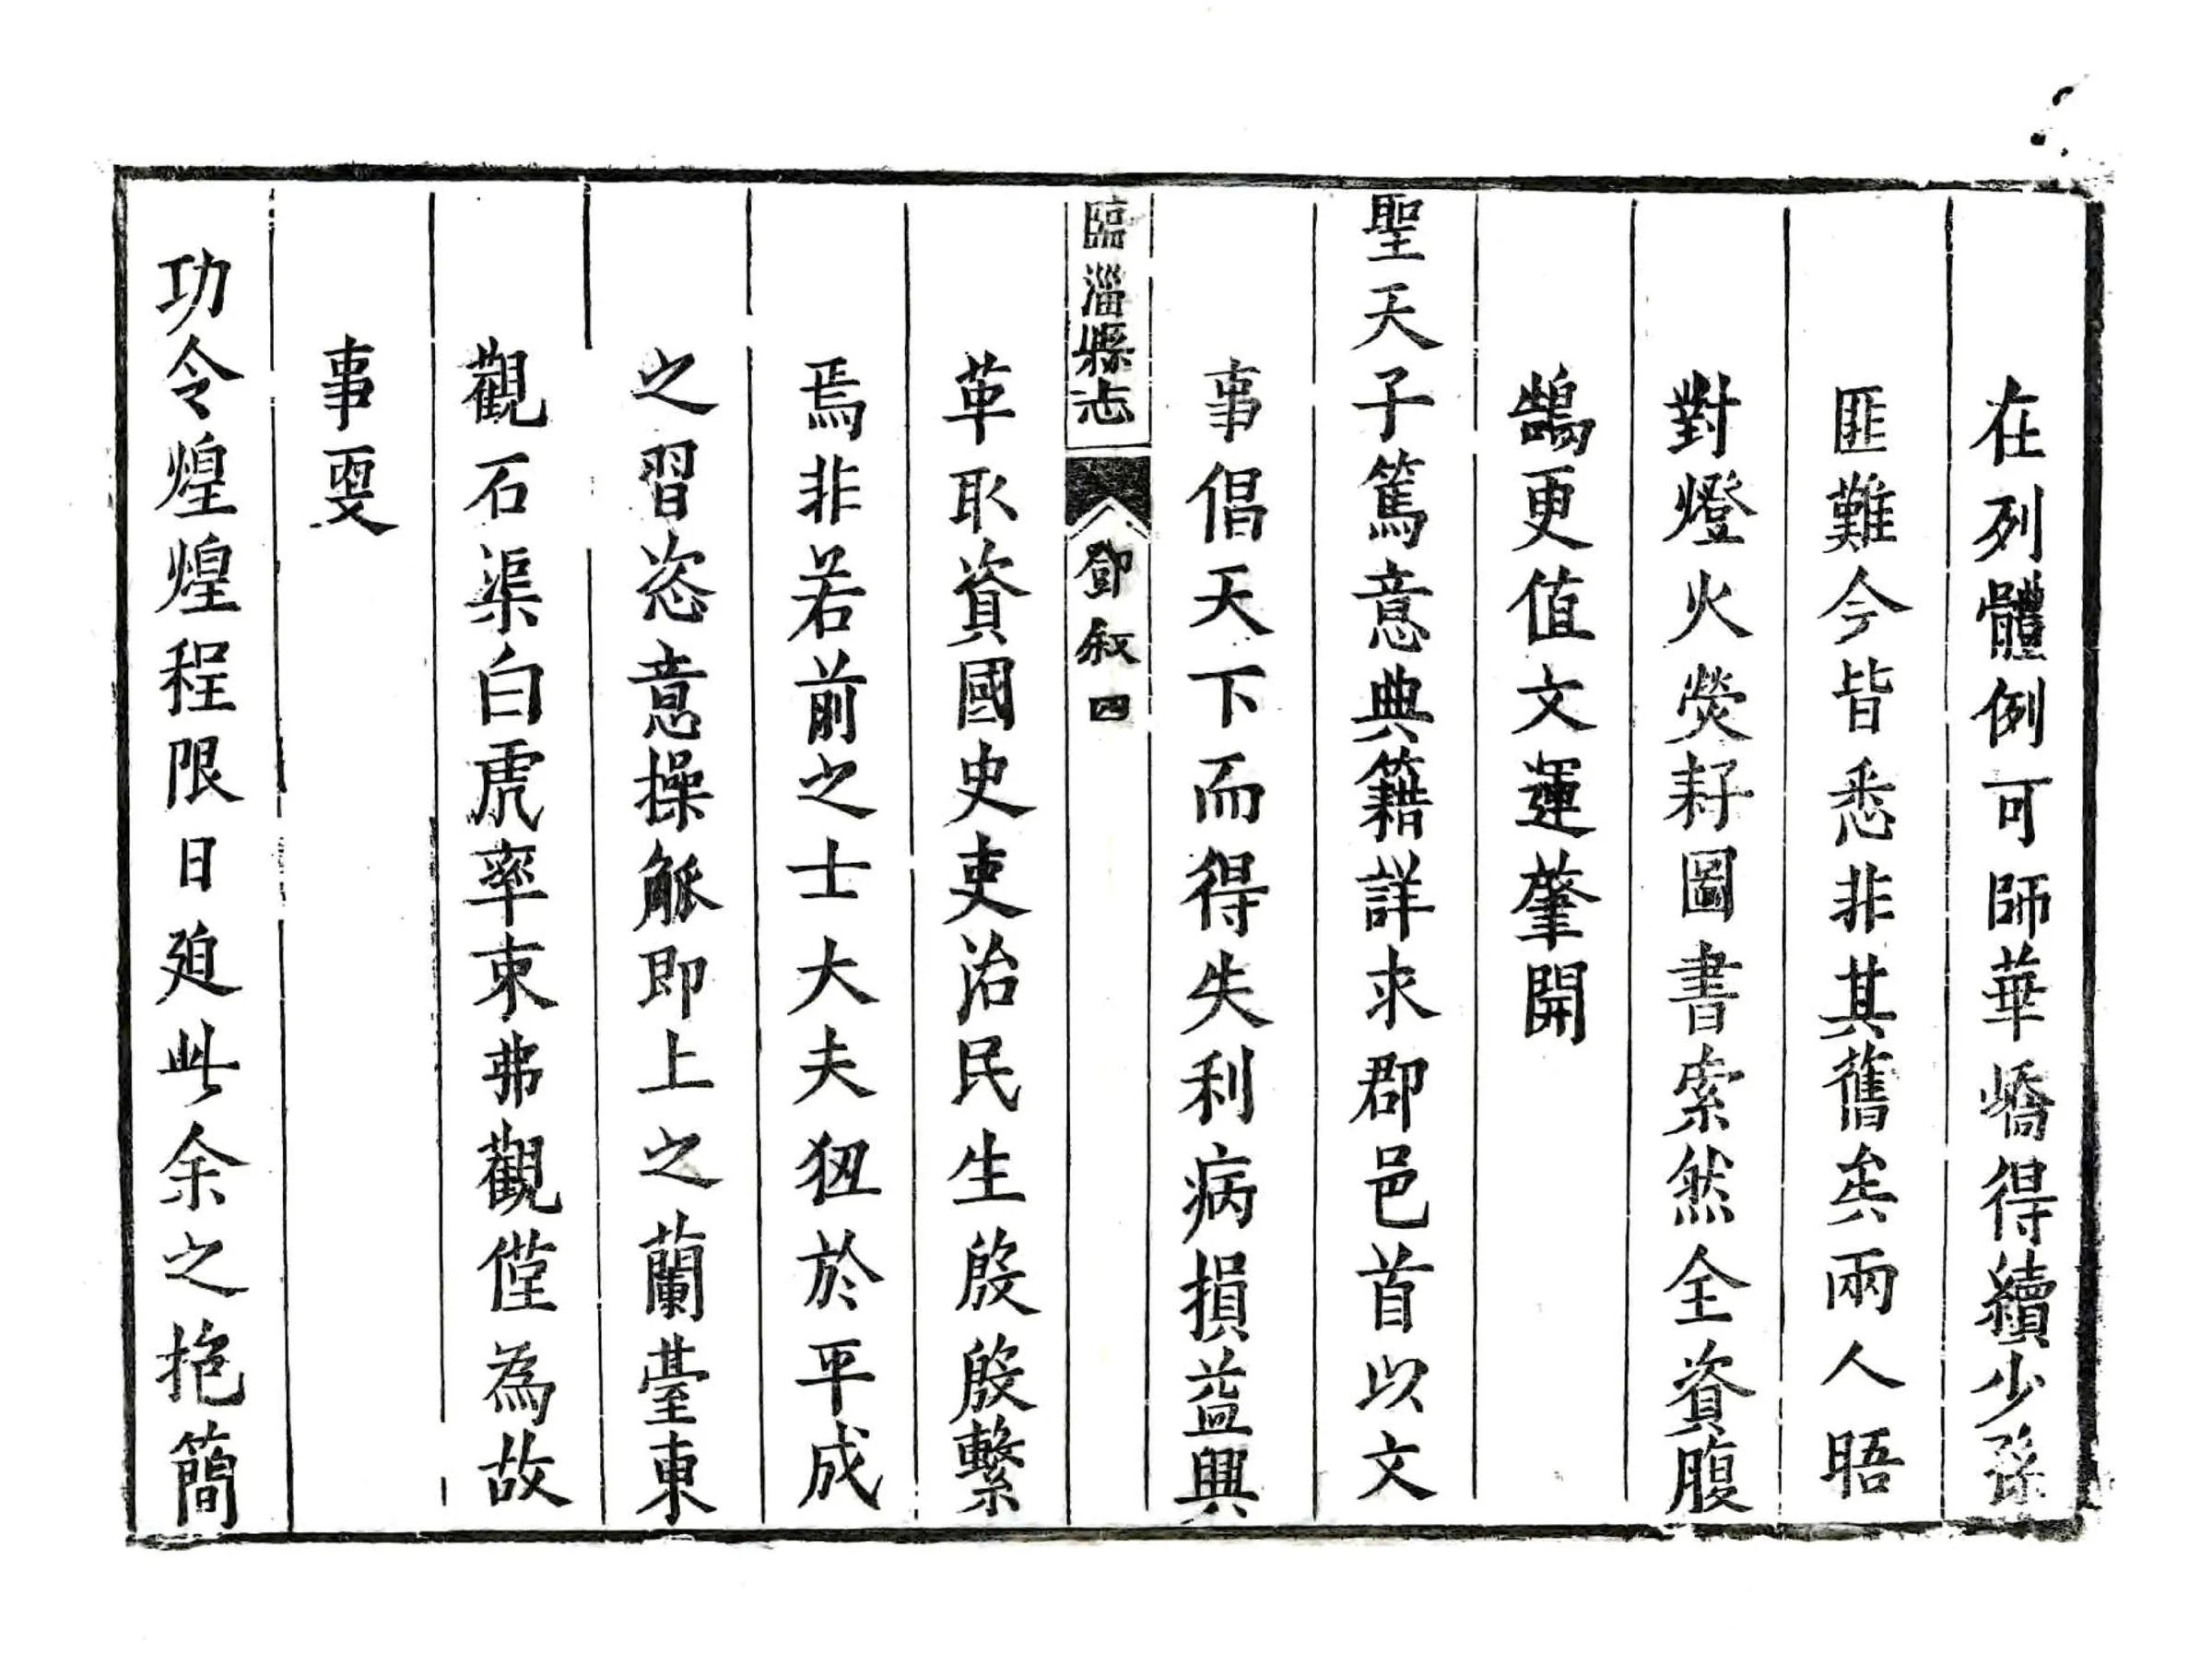 在列體例可師華嶠得續少孫
匪難今皆悉非其舊矣兩人晤
對燈火熒耔圖書索然全資腹
鵠更值文運肇開
聖天子篤意典籍詳求郡邑首以文
事倡天下而得失利病損益興
臨淄縣志 鄧叙 四
革取資國史吏治民生殷殷繫
焉非若前之士大夫狃於平成
之習恣意操觚即上之蘭臺東
觀石渠白虎率束弗觀僅為故
事耍
功令煌煌程限日廹此余之抱簡